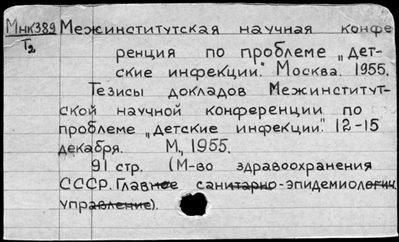 Мнк389 Межинститутская научная конфе
Т2 ренция по проблеме „Дет-
ские инфекции." Москва. 1955.
Тезисы докладов Межинститут-
ской научной конференции по
проблеме „Детские инфекции." 12-15
декабря. М., 1955.
91 стр. (М-во здравоохранения
СССР. Главное санитарно-эпидемиологич.
управление).